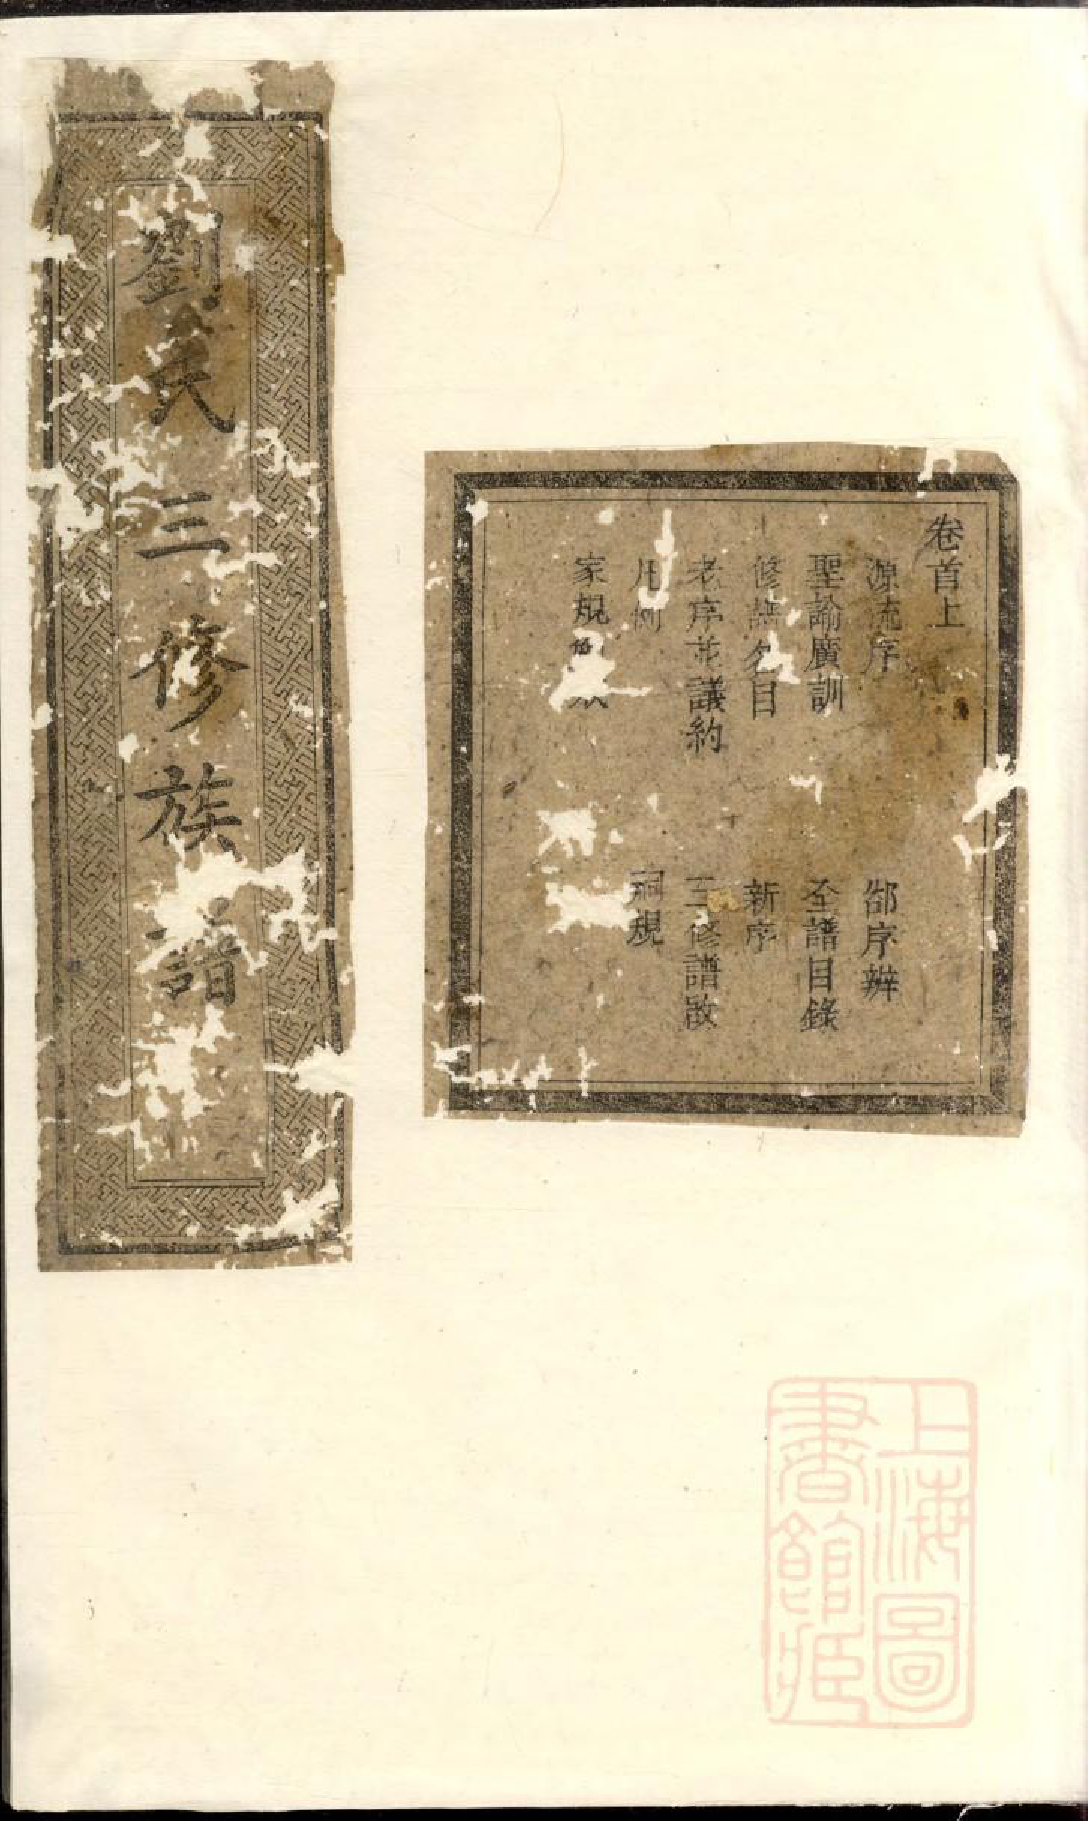 劉氏三修族譜
卷首上
源流序 郤序辨
聖諭廣訓 全譜目錄
修譜名目 新序
老序並議約 三修譜啟
凡例 祠規
家規
上海圖
書館藏